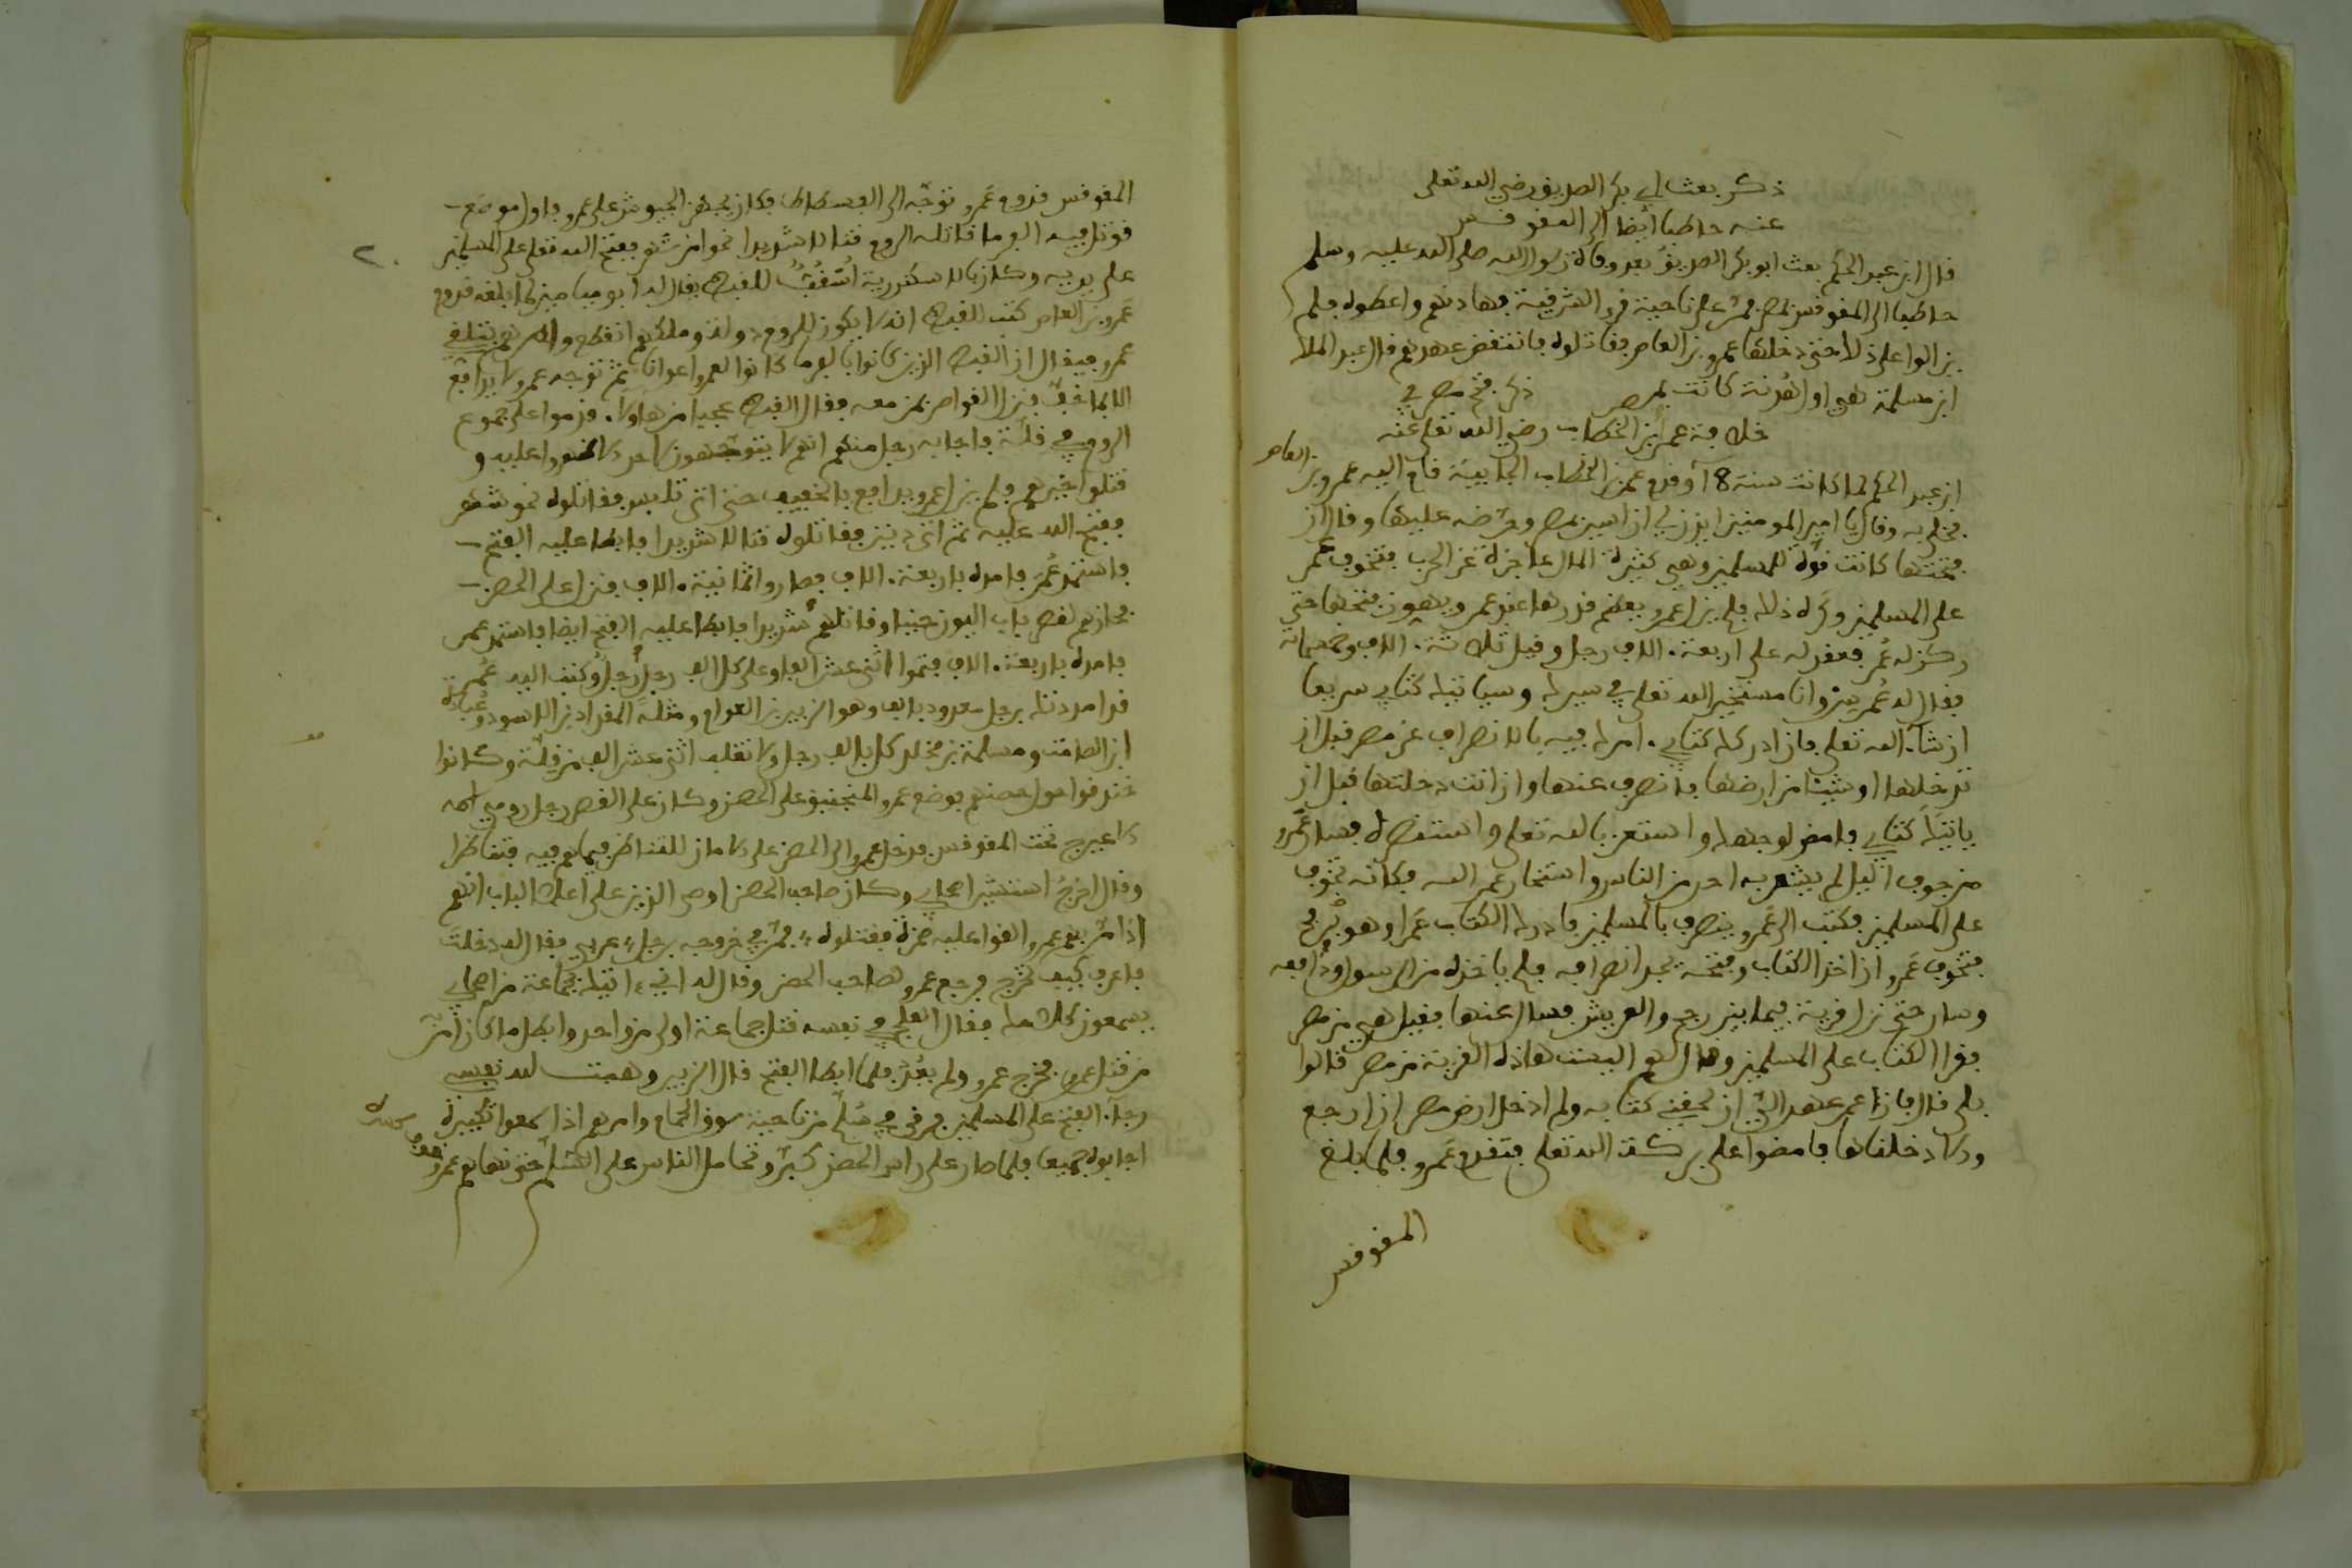 ذكر بعث ابي بكر الصديق رضي الله تعلى
عنه حاطبا ايضا الى المقوقس
قال ابن عبد الحكم بعث ابو بكر الصديق بعد وفاة رسول الله صلى الله عليه وسلم
حاطبا الى المقوقس بمصر فمر على ناحية قرى الشرقية فهادنهم واعطوه فلم
يزالوا على ذلك حتى دخلها عمرو بن العاص فقاتلوه فانتقض عهدهم قال عبد الملك
ابن مسلمة هي اول هدنة كانت بمصر ذكر فتح مصر في
خلافة عمر بن الخطاب رضي الله تعلى عنه
ابن عبد الحكم لما كانت سنة 18 وقدم عمر بن الخطاب الجابية قام اليه عمرو بن العاص
فخلى به وقال يا امير المومنين ايذن لي ان اسير بمصر وحرضه عليها وقال ان
فتحتها كانت قوة للمسلمين وهي كثيرة المال عاجزة عن الحرب فتخوف عمر
على المسلمين وكره ذلك فلم يزل عمرو يعظم قدرها عند عمر ويهون فتحها حتى
ركن له عمر فعقد له على اربعة الاف رجل وقيل ثلاثة الاف وخمسمائة
فقال له عمر سر وانا مستخير الله تعلى في سيرك وسياتيك كتابي سريعا
ان شاء الله تعلى فان ادركك كتابي امرك فيه بالانصراف عن مصر قبل ان
تدخلها او شيئا من ارضها فانصرف عنها وان انت دخلتها قبل ان
ياتيك كتابي فامض لوجهك واستعن بالله تعلى واستنصره فسار عمرو
من جوف اليل لم يشعر به احد من الناس واستخار عمر الله فكانه تخوف
على المسلمين فكتب الى عمرو ينصرف بالمسلمين فادرك الكتاب عمرا وهو برفح
فتخوف عمرو ان اخذ الكتاب وفتحه يجد انصرافه فلم ياخذه من الرسول ودافعه
وسار حتى نزل قرية فيما بين رفح والعريش فسال عنها فقيل هي من مصر
فقرا الكتاب على المسلمين وقال لهم اليست هاذه القرية من مصر قالوا
بلى قال فان عمر عهد الي ان لحقني كتابه ولم ادخل ارض مصر ان ارجع
وقد دخلناها فامضوا على بركة الله تعلى فتقدم عمرو فلما بلغ
المقوقس
المقوقس قدوم عمرو توجه الى الفسطاط فكان يجهز الجيوش على عمرو فاول موضع
قوتل فيه الفرما قاتله الروم قتالا شديدا نحوا من شهر ففتح الله تعلى على المسلمين
على يديه وكان بالاسكندرية اسقف للقبط يقال له ابو ميامين لما بلغه قدوم
عمرو بن العاص كتب للقبط انه لا يكون للروم دولة وملكهم انقطع وامرهم بتلقي
عمرو فيقال ان القبط الذين كانوا بالفرما كانوا لعمرو اعوانا ثم توجه عمرو لا يدافع
الا بما خف فنزل القواصر بمن معه فقال القبط عجبا من هاولاء قدموا على جموع
الروم في قلة فاجابه رجل منهم انهم لا يتوجهون لاحد الا ظهروا عليه و
قتلوا خيرهم ولم يزل عمرو يدافع بالخفيف حتى اتى بلبيس فقاتلوه نحو شهر
ففتح الله عليه ثم اتى دنين فقاتلوه قتالا شديدا فابطا عليه الفتح
فاستمد عمر فامده باربعة الاف فصاروا ثمانية الاف فنزل على الحصن
فحاز بهم لقصر باب اليون حينا وقاتلهم شديدا فابطا عليه الفتح ايضا فاستمد عمر
فامده باربعة الاف فتموا اثنى عشر الفا وعلى كل الف رجل رجل وكتب اليه عمر
قد امددتك برجل معدود بالف وهو الزبير بن العوام ومثله المقداد بن الاسود وعبادة
ابن الصامت ومسلمة بن مخلد كل بالف رجل ولا تغلب اثنى عشر الف من قلة وكانوا
خندقوا حول حصنهم فوضع عمرو المنجنيق على الحصن وكان على القصر رجل رومي اسمه
لاعيرج تحت المقوقس فدخل عمرو الى الحصن على الامان للتناظر فيما هم فيه فتناظرا
وقال اخرج استشير اصحابي وكان صاحب الحصن اوصى الذين على اعلى الباب انهم
اذا مر بهم عمرو القوا عليه صخرة فقتلوه فمر في خروجه برجل عربي فقال له دخلت
فاعرف كيف تخرج فرجع عمرو لصاحب الحصن وقال له اني اتيك بجماعة من اصحابي
يسمعون كلامك فقال العلج في نفسه قتل جماعة اولى من واحد وابطل ما كان امر
من قتل عمرو فخرج عمرو ولم يعد فلما ابطا الفتح قال الزبير وهبت لله نفسي
رجاء الفتح على المسلمين فرقي في سلم من ناحية سوق الحمام وامرهم اذا سمعوا تكبيره
اجابوه جميعا فلما صار على راس الحصن كبر وتحامل الناس على السلم حتى نهاهم عمرو